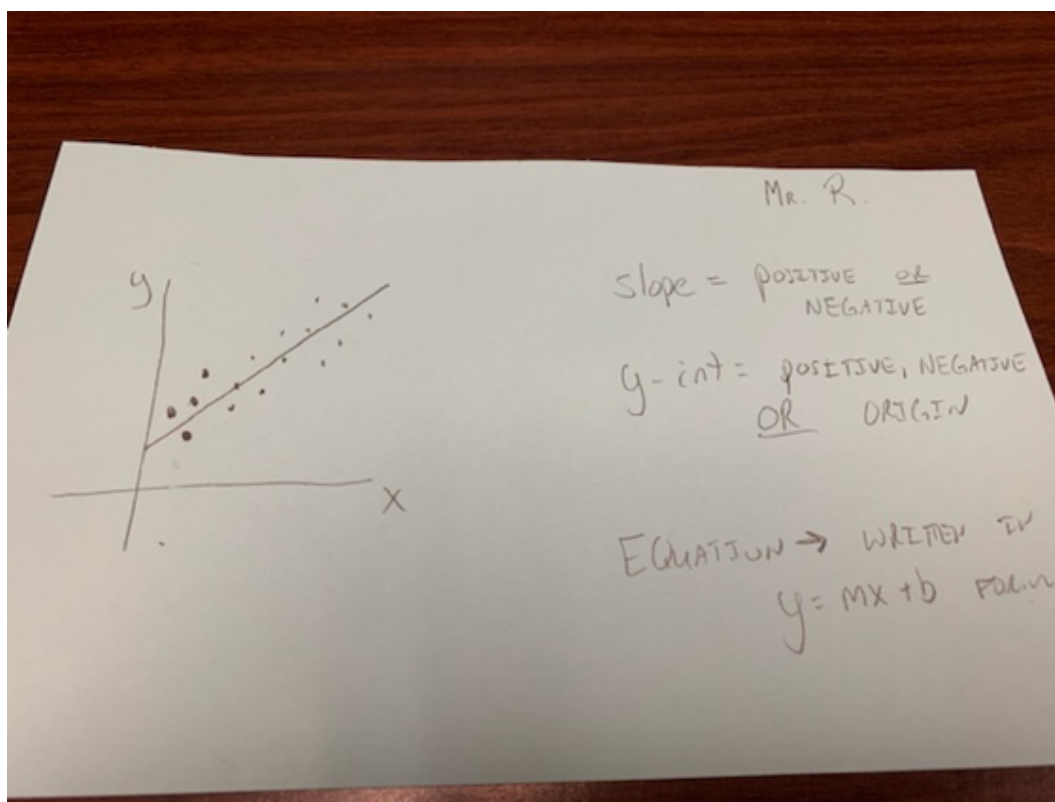 Mr. R.
y
slope = POSITIVE OR
NEGATIVE
y-int = POSITIVE, NEGATIVE
OR ORIGIN
x
EQUATION → WRITTEN IN
y = mx + b FORM